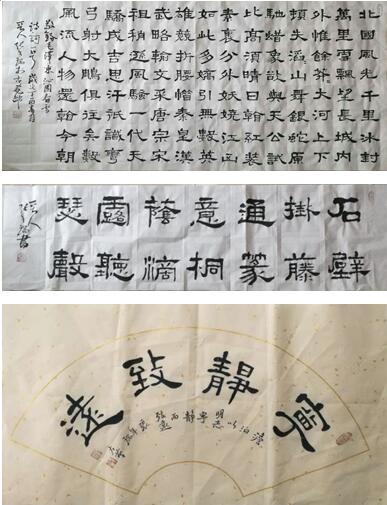 北國風光千里冰封
萬里雪飄望長城內
外惟餘莽大河上下
頓失滔山舞銀蛇原
馳蠟象欲與天公試
比高須晴日看紅裝
素裹分外妖嬈江山
如此多嬌引無數英
雄競折腰惜秦皇漢
武略輸文采唐宗宋
祖稍遜風騷一代天
驕成吉思汗祗識彎
弓射大鵰俱往矣數
風流人物還看今朝
敬錄毛澤東沁園春雪
詩詞一首歲次丁酉
石壁
掛藤
通篆
意桐
蔭滴
露聽
瑟聲
寧靜致遠
澹泊以明志寧靜而致遠